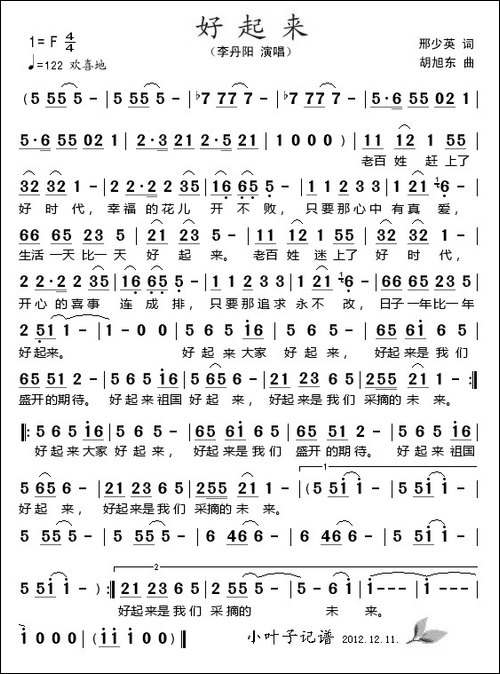 好起来
（李丹阳 演唱）
1= F 4/4
♩=122 欢喜地
邢少英 词
胡旭东 曲
(5 55 5 - | 5 55 5 - | ♭7 77 7 - | ♭7 77 7 - | 5·6 55 02 1 |
5·6 55 02 1 | 2·3 21 2 - | 5·5 21 2 - | 1 0 0 0 ) | 11 12 1 55 |
老百 姓 赶 上了
32 32 1 - | 2 2·2 2 35 | 16 65 5 - | 3 3 2 3 1 3 | 1 21 6 - |
好 时 代， 幸 福 的 花儿 开 不 败， 只 要 那 心 中 有 真 爱，
66 65 23 5 | 21 23 5 - | 11 12 1 55 | 32 32 1 - |
生活 一天 比一 天 好 起 来。 老百 姓 迷 上了 好 时 代，
2 2·2 2 35 | 16 65 5 - | 3 3 2 3 1 3 | 1 21 6 - | 66 65 23 5 |
开 心 的 喜事 连 成 排， 只 要 那 追 求 永 不 改， 日子 一年 比一 年
2 51 1 - | 1 - 0 0 | 5 6 5 i6 | 5 65 6 - | 65 6i 6 5 |
好 起来。 好 起 来 大家 好 起 来， 好起 来是 我 们
65 51 2 - | 5 6 5 i6 | 5 65 6 - | 21 23 6 5 | 255 21 1 - :|
盛开 的期 待。 好 起 来 祖国 好 起 来， 好起 来是 我 们 采摘的 未 来。
|: 5 6 5 i6 | 5 65 6 - | 65 6i 6 5 | 65 51 2 - | 5 6 5 i6 |
好 起 来 大家 好 起 来， 好起 来是 我 们 盛开 的期 待。 好 起 来 祖国
5 65 6 - | 21 23 6 5 | 255 21 1 - | (5 5i i - | 5 5i i - |
好 起 来， 好起 来是 我 们 采摘的 未 来。
5 55 5 - | 5 55 5 - | 6 66 6 - | 6 66 6 - | 5 5i i - |
5 5i i - ) :| 21 23 6 5 | 255 2 - - | 5 - 6 i | i - - - | i - - - |
好起 来是 我 们 采摘的 未 来。
i 0 0 0 | (i i i i 0 0) ‖
小叶子记谱 2012.12.11.